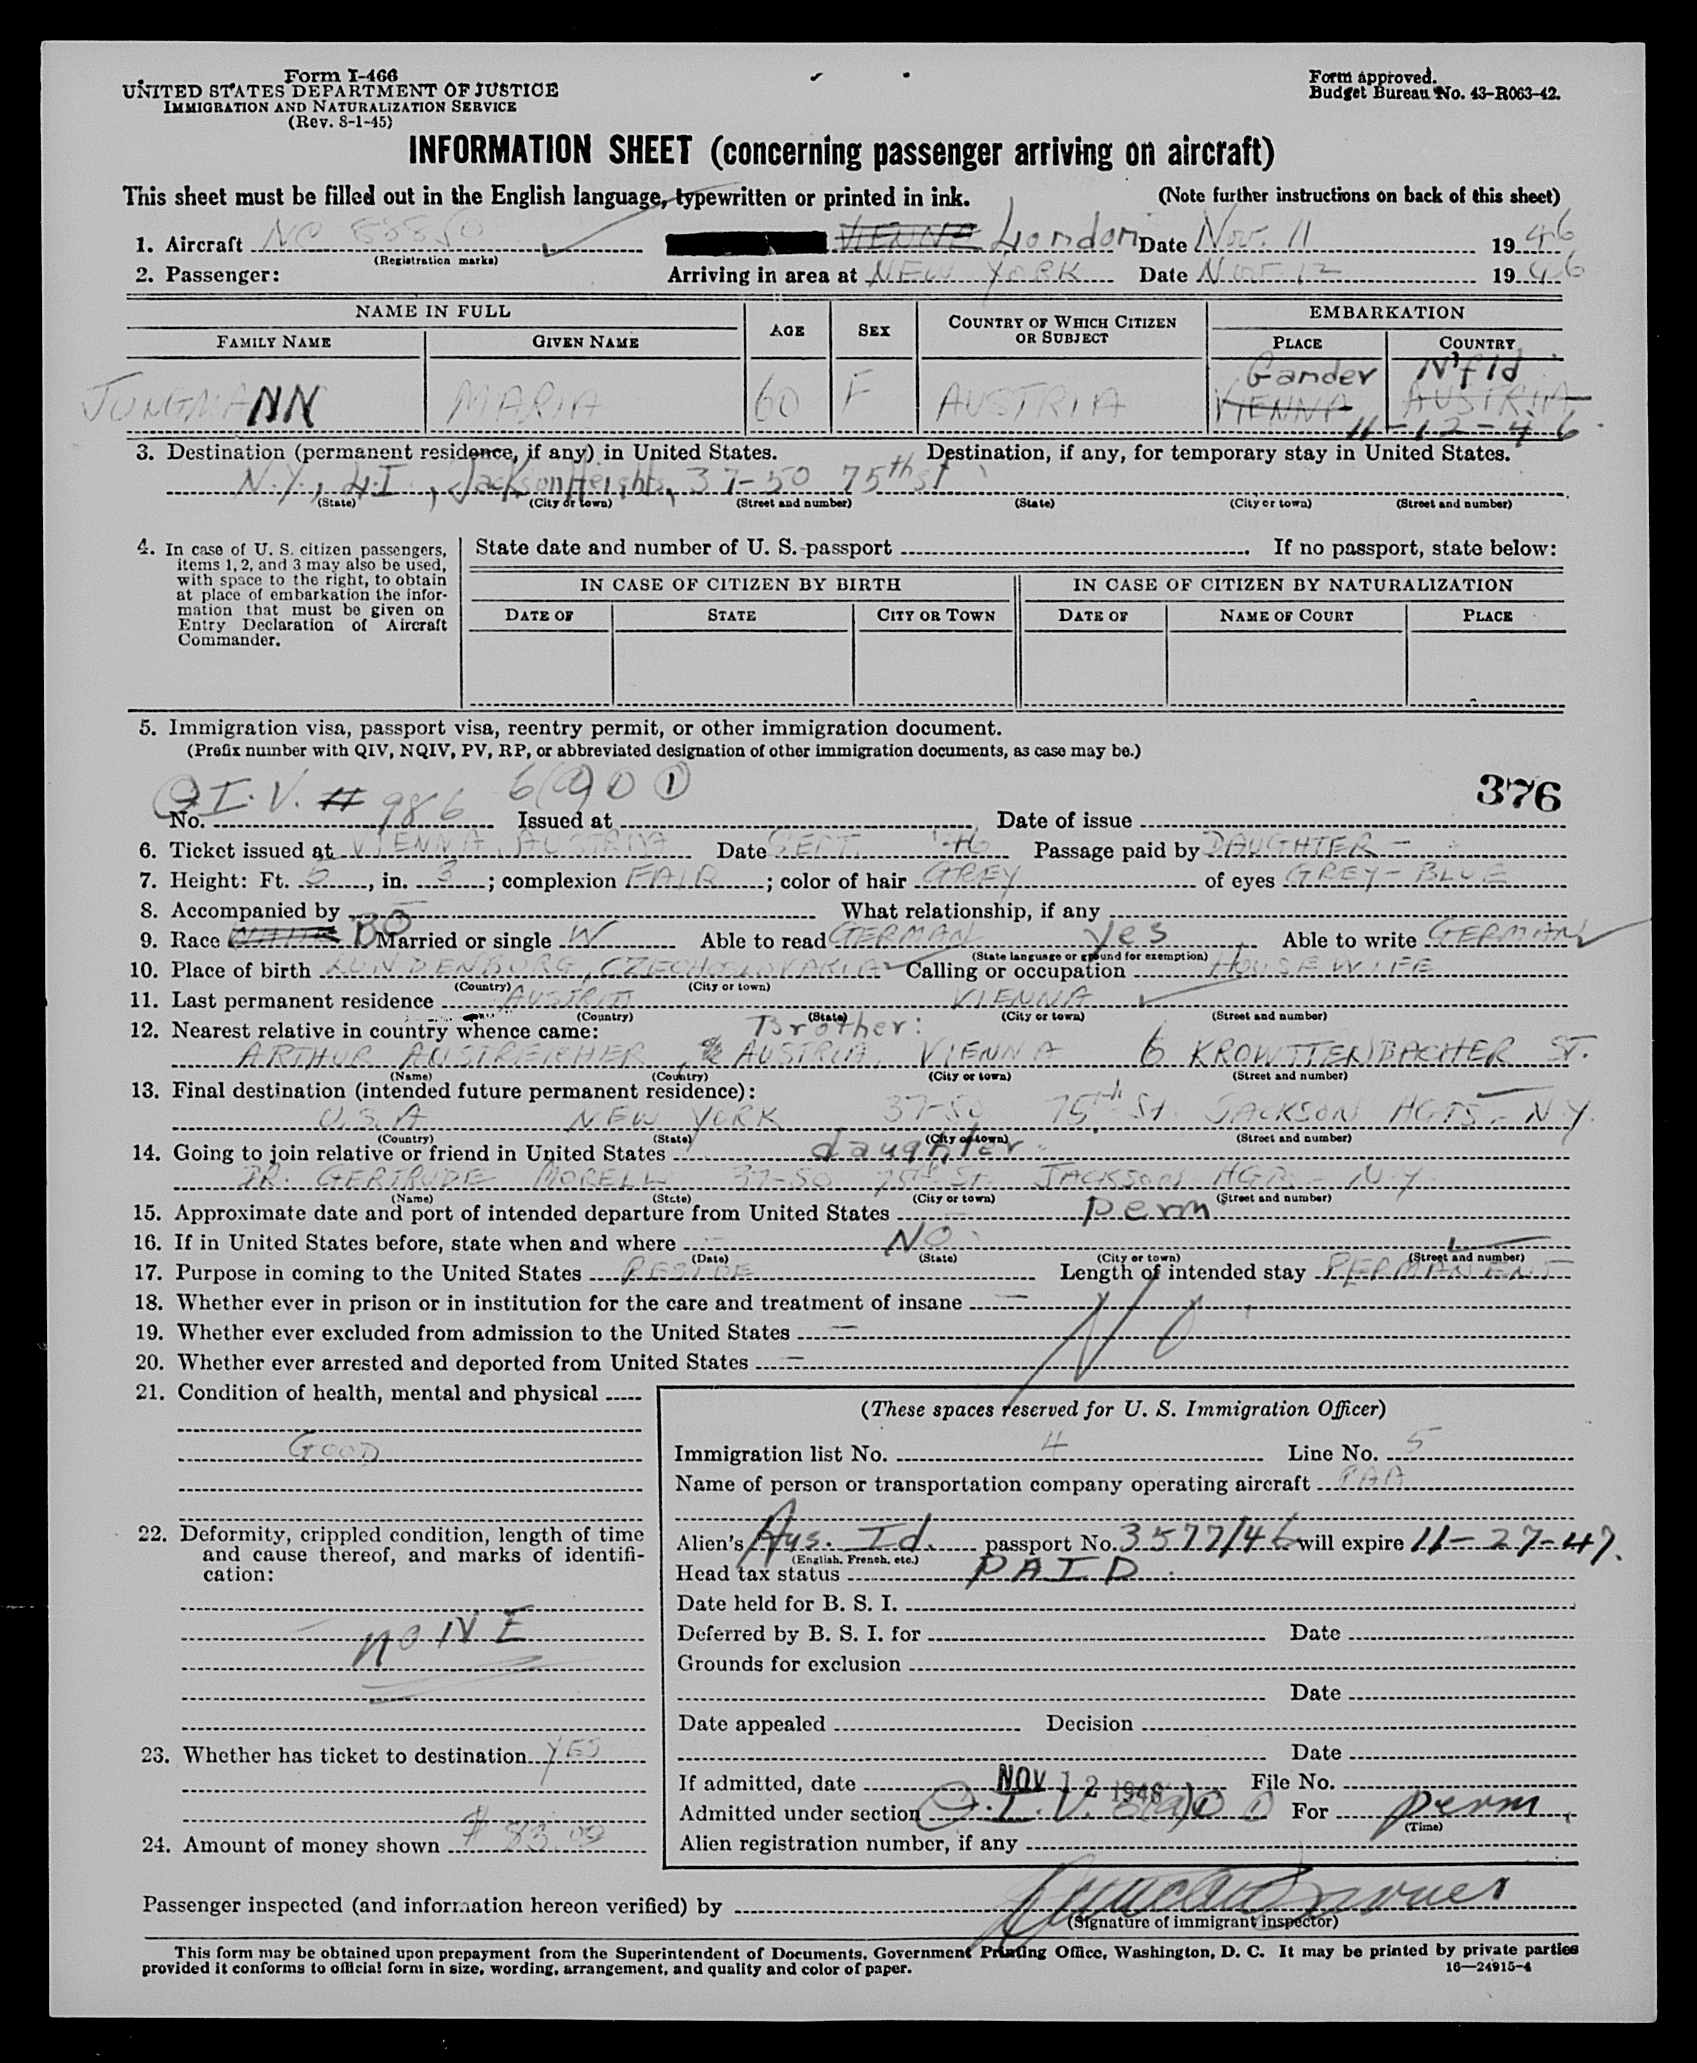 Form I-466
UNITED STATES DEPARTMENT OF JUSTICE
IMMIGRATION AND NATURALIZATION SERVICE
(Rev. 8-1-45)
Form approved.
Budget Bureau No. 43-R063-42.
INFORMATION SHEET (concerning passenger arriving on aircraft)
This sheet must be filled out in the English language, typewritten or printed in ink. (Note further instructions on back of this sheet)
1. Aircraft NC VIENNA London Date Nov. 11 1946
(Registration marks)
2. Passenger: Arriving in area at NEW YORK Date Nov. 12 1946
NAME IN FULL AGE SEX COUNTRY OF WHICH CITIZEN OR SUBJECT EMBARKATION
FAMILY NAME GIVEN NAME PLACE COUNTRY
Gander N'fld
JUNGMANN MARIA 60 F AUSTRIA VIENNA AUSTRIA
11-12-46
3. Destination (permanent residence, if any) in United States. Destination, if any, for temporary stay in United States.
N.Y., L.I., Jackson Heights, 37-50 75th st
(State) (City or town) (Street and number) (State) (City or town) (Street and number)
4. In case of U. S. citizen passengers, items 1, 2, and 3 may also be used, with space to the right, to obtain at place of embarkation the information that must be given on Entry Declaration of Aircraft Commander.
State date and number of U. S. passport . If no passport, state below:
IN CASE OF CITIZEN BY BIRTH IN CASE OF CITIZEN BY NATURALIZATION
DATE OF STATE CITY OR TOWN DATE OF NAME OF COURT PLACE
5. Immigration visa, passport visa, reentry permit, or other immigration document.
(Prefix number with QIV, NQIV, PV, RP, or abbreviated designation of other immigration documents, as case may be.)
376
Q.I.V. # 986 6(a)(1)
No. Issued at Date of issue
6. Ticket issued at VIENNA, AUSTRIA Date SEPT. '46 Passage paid by DAUGHTER -
7. Height: Ft. 5, in. 3; complexion FAIR; color of hair GREY of eyes GREY-BLUE
8. Accompanied by - What relationship, if any
9. Race BO Married or single W Able to read GERMAN yes Able to write GERMAN
(State language or ground for exemption)
10. Place of birth LUNDENBURG, CZECHOSLOVAKIA Calling or occupation HOUSEWIFE
(Country) (City or town)
11. Last permanent residence AUSTRIA VIENNA
(Country) (State) (City or town) (Street and number)
12. Nearest relative in country whence came: Brother:
ARTHUR AUSTREICHER, AUSTRIA VIENNA 6 KROWTTENBACHER ST.
(Name) (Country) (City or town) (Street and number)
13. Final destination (intended future permanent residence):
U.S.A NEW YORK 37-50 75th St. JACKSON HGTS - N.Y.
(Country) (State) (City or town) (Street and number)
14. Going to join relative or friend in United States daughter
DR. GERTRUDE MORELL 37-50 75th St. JACKSON HGTS - N.Y.
(Name) (State) (City or town) (Street and number)
15. Approximate date and port of intended departure from United States - perm
16. If in United States before, state when and where - NO
(Date) (State) (City or town) (Street and number)
17. Purpose in coming to the United States RESIDE Length of intended stay PERMANENT
18. Whether ever in prison or in institution for the care and treatment of insane -
19. Whether ever excluded from admission to the United States - No
20. Whether ever arrested and deported from United States -
21. Condition of health, mental and physical
GOOD
22. Deformity, crippled condition, length of time and cause thereof, and marks of identification:
- NONE
23. Whether has ticket to destination YES
24. Amount of money shown $ 83.00
(These spaces reserved for U. S. Immigration Officer)
Immigration list No. 4 Line No. 5
Name of person or transportation company operating aircraft PAA
Alien's Aus. Id. passport No. 3577/46 will expire 11-27-47.
(English, French, etc.)
Head tax status PAID
Date held for B. S. I.
Deferred by B. S. I. for Date
Grounds for exclusion
Date
Date appealed Decision
Date
If admitted, date NOV 12 1946 File No.
Admitted under section Q.I.V. 6(a)(1) For perm.
(Time)
Alien registration number, if any
Passenger inspected (and information hereon verified) by
(Signature of immigrant inspector)
This form may be obtained upon prepayment from the Superintendent of Documents, Government Printing Office, Washington, D. C. It may be printed by private parties
provided it conforms to official form in size, wording, arrangement, and quality and color of paper. 16—24915-4